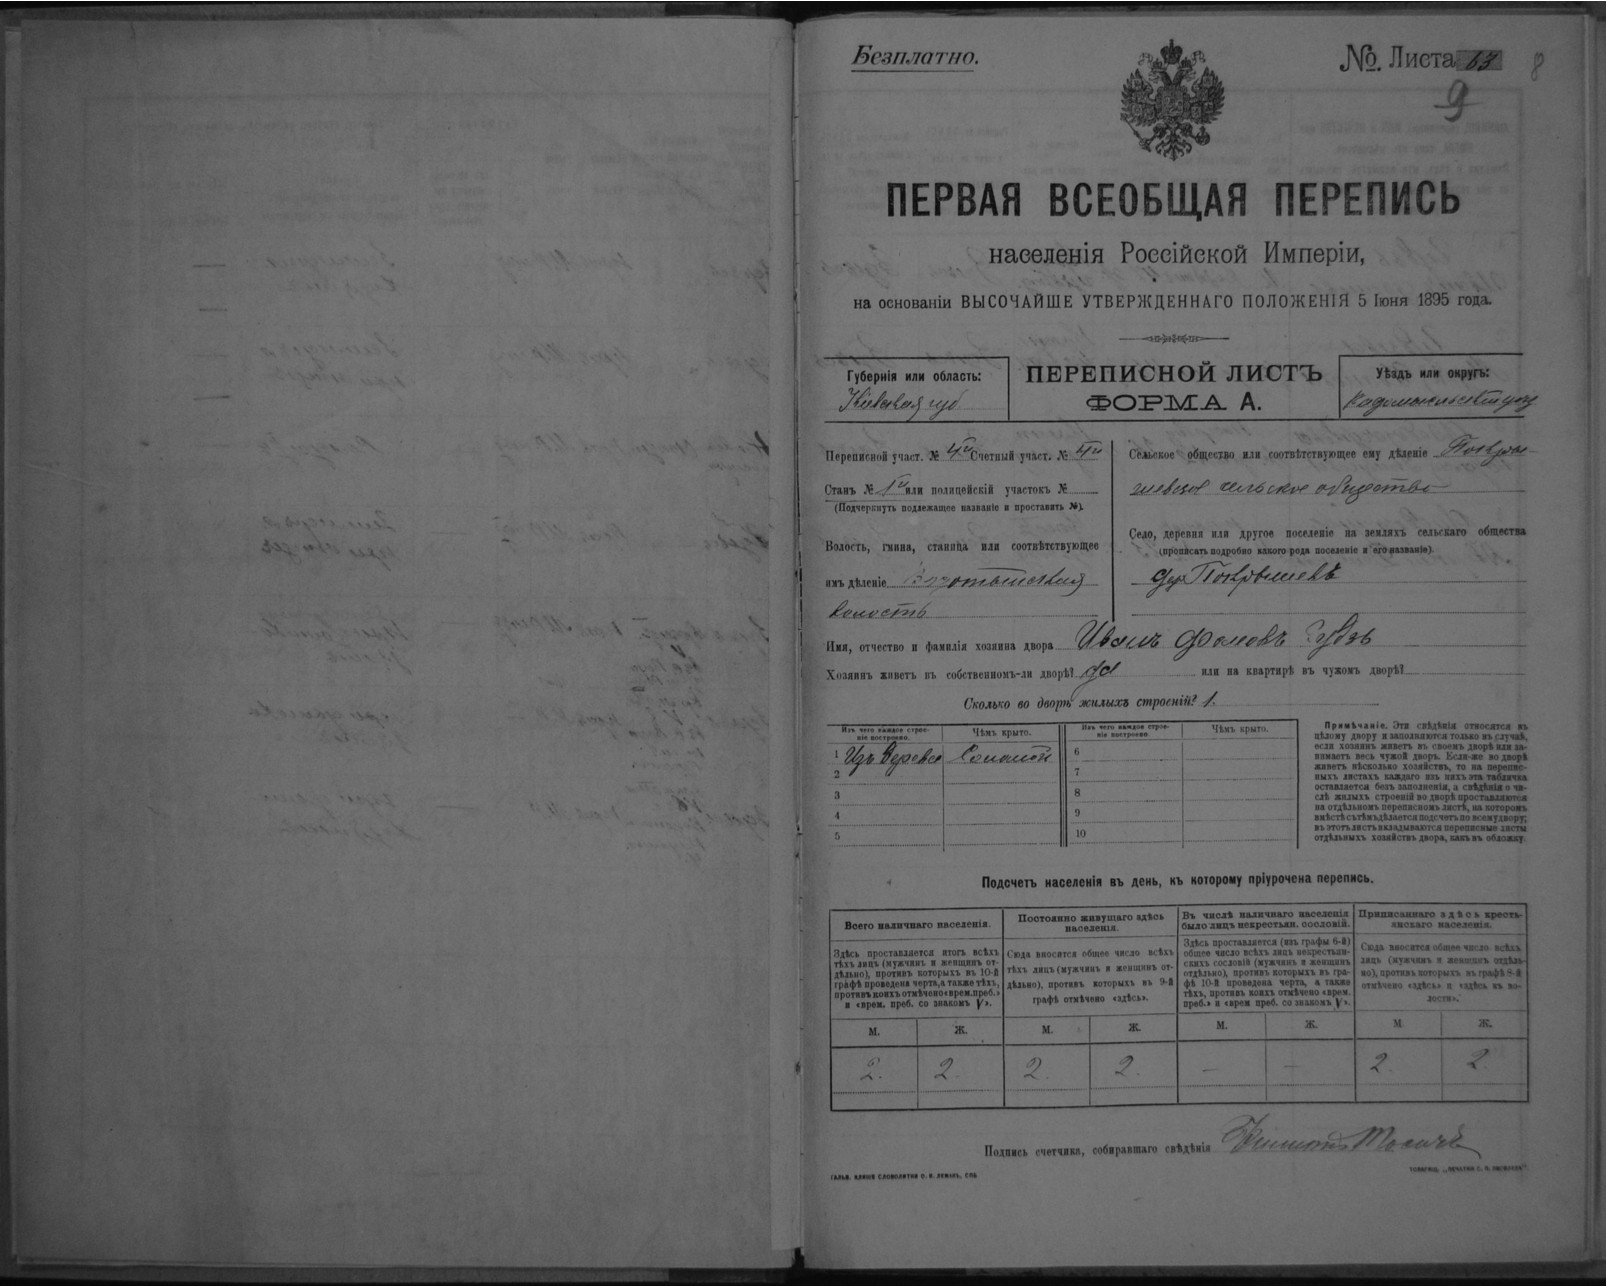 Безплатно.
№. Листа 63 8
9
ПЕРВАЯ ВСЕОБЩАЯ ПЕРЕПИСЬ
населенія Россійской Имперіи,
на основаніи ВЫСОЧАЙШЕ УТВЕРЖДЕННАГО ПОЛОЖЕНІЯ 5 Іюня 1895 года.
Губернія или область:
Кіевская губ
ПЕРЕПИСНОЙ ЛИСТЪ
ФОРМА А.
Уѣздъ или округъ:
Переписной участ. № 4й Счетный участ. № 4й
Станъ № 1й или полицейскій участокъ №
(Подчеркнуть подлежащее названіе и проставить №).
Волость, гмина, станица или соотвѣтствующее
имъ дѣленіе
волость
Сельское общество или соотвѣтствующее ему дѣленіе
сельское общество
Село, деревня или другое поселеніе на земляхъ сельскаго общества
(прописать подробно какого рода поселеніе и его названіе)
дер.
Имя, отчество и фамилія хозяина двора Иванъ Фомовъ
Хозяинъ живетъ въ собственномъ-ли дворѣ? да или на квартирѣ въ чужомъ дворѣ?
Сколько во дворѣ жилыхъ строеній? 1.
Изъ чего каждое строеніе построено.
Чѣмъ крыто.
Изъ чего каждое строеніе построено
Чѣмъ крыто.
1 Изъ дерева Соломой 6
2 7
3 8
4 9
5 10
Примѣчаніе. Эти свѣдѣнія относятся къ
цѣлому двору и заполняются только въ случаѣ,
если хозяинъ живетъ въ своемъ дворѣ или за-
нимаетъ весь чужой дворъ. Если-же во дворѣ
живетъ нѣсколько хозяйствъ, то на перепис-
ныхъ листахъ каждаго изъ нихъ эта табличка
оставляется безъ заполненія, а свѣдѣнія о чи-
слѣ жилыхъ строеній во дворѣ проставляются
на отдѣльномъ переписномъ листѣ, на которомъ
вмѣстѣ съ тѣмъ дѣлается подсчетъ по всему двору;
въ этотъ листъ вкладываются переписные листы
отдѣльныхъ хозяйствъ двора, какъ въ обложку
Подсчетъ населенія въ день, къ которому пріурочена перепись.
Всего наличнаго населенія.
Постоянно живущаго здѣсь
населенія.
Въ числѣ наличнаго населенія
было лицъ некрестьян. сословій.
Приписаннаго здѣсь кресть-
янскаго населенія.
Здѣсь проставляется итогъ всѣхъ
тѣхъ лицъ (мужчинъ и женщинъ от-
дѣльно), противъ которыхъ въ 10-й
графѣ проведена черта, а также тѣхъ,
противъ коихъ отмѣчено «врем. преб.»
и «врем. преб. со знакомъ V».
Сюда вносится общее число всѣхъ
тѣхъ лицъ (мужчинъ и женщинъ от-
дѣльно), противъ которыхъ въ 9-й
графѣ отмѣчено «здѣсь».
Здѣсь проставляется (изъ графы 6-й)
общее число всѣхъ лицъ некрестьян-
скихъ сословій (мужчинъ и женщинъ
отдѣльно), противъ которыхъ въ гра-
фѣ 10-й проведена черта, а также
тѣхъ, противъ коихъ отмѣчено «врем.
преб.» и «врем преб. со знакомъ V».
Сюда вносится общее число всѣхъ
лицъ (мужчинъ и женщинъ отдѣль-
но), противъ которыхъ въ графѣ 8-й
отмѣчено «здѣсь» и «здѣсь въ во-
лости».
М. Ж. М. Ж. М. Ж. М Ж.
2. 2. 2. 2. — — 2. 2.
Подпись счетчика, собиравшаго свѣдѣнія